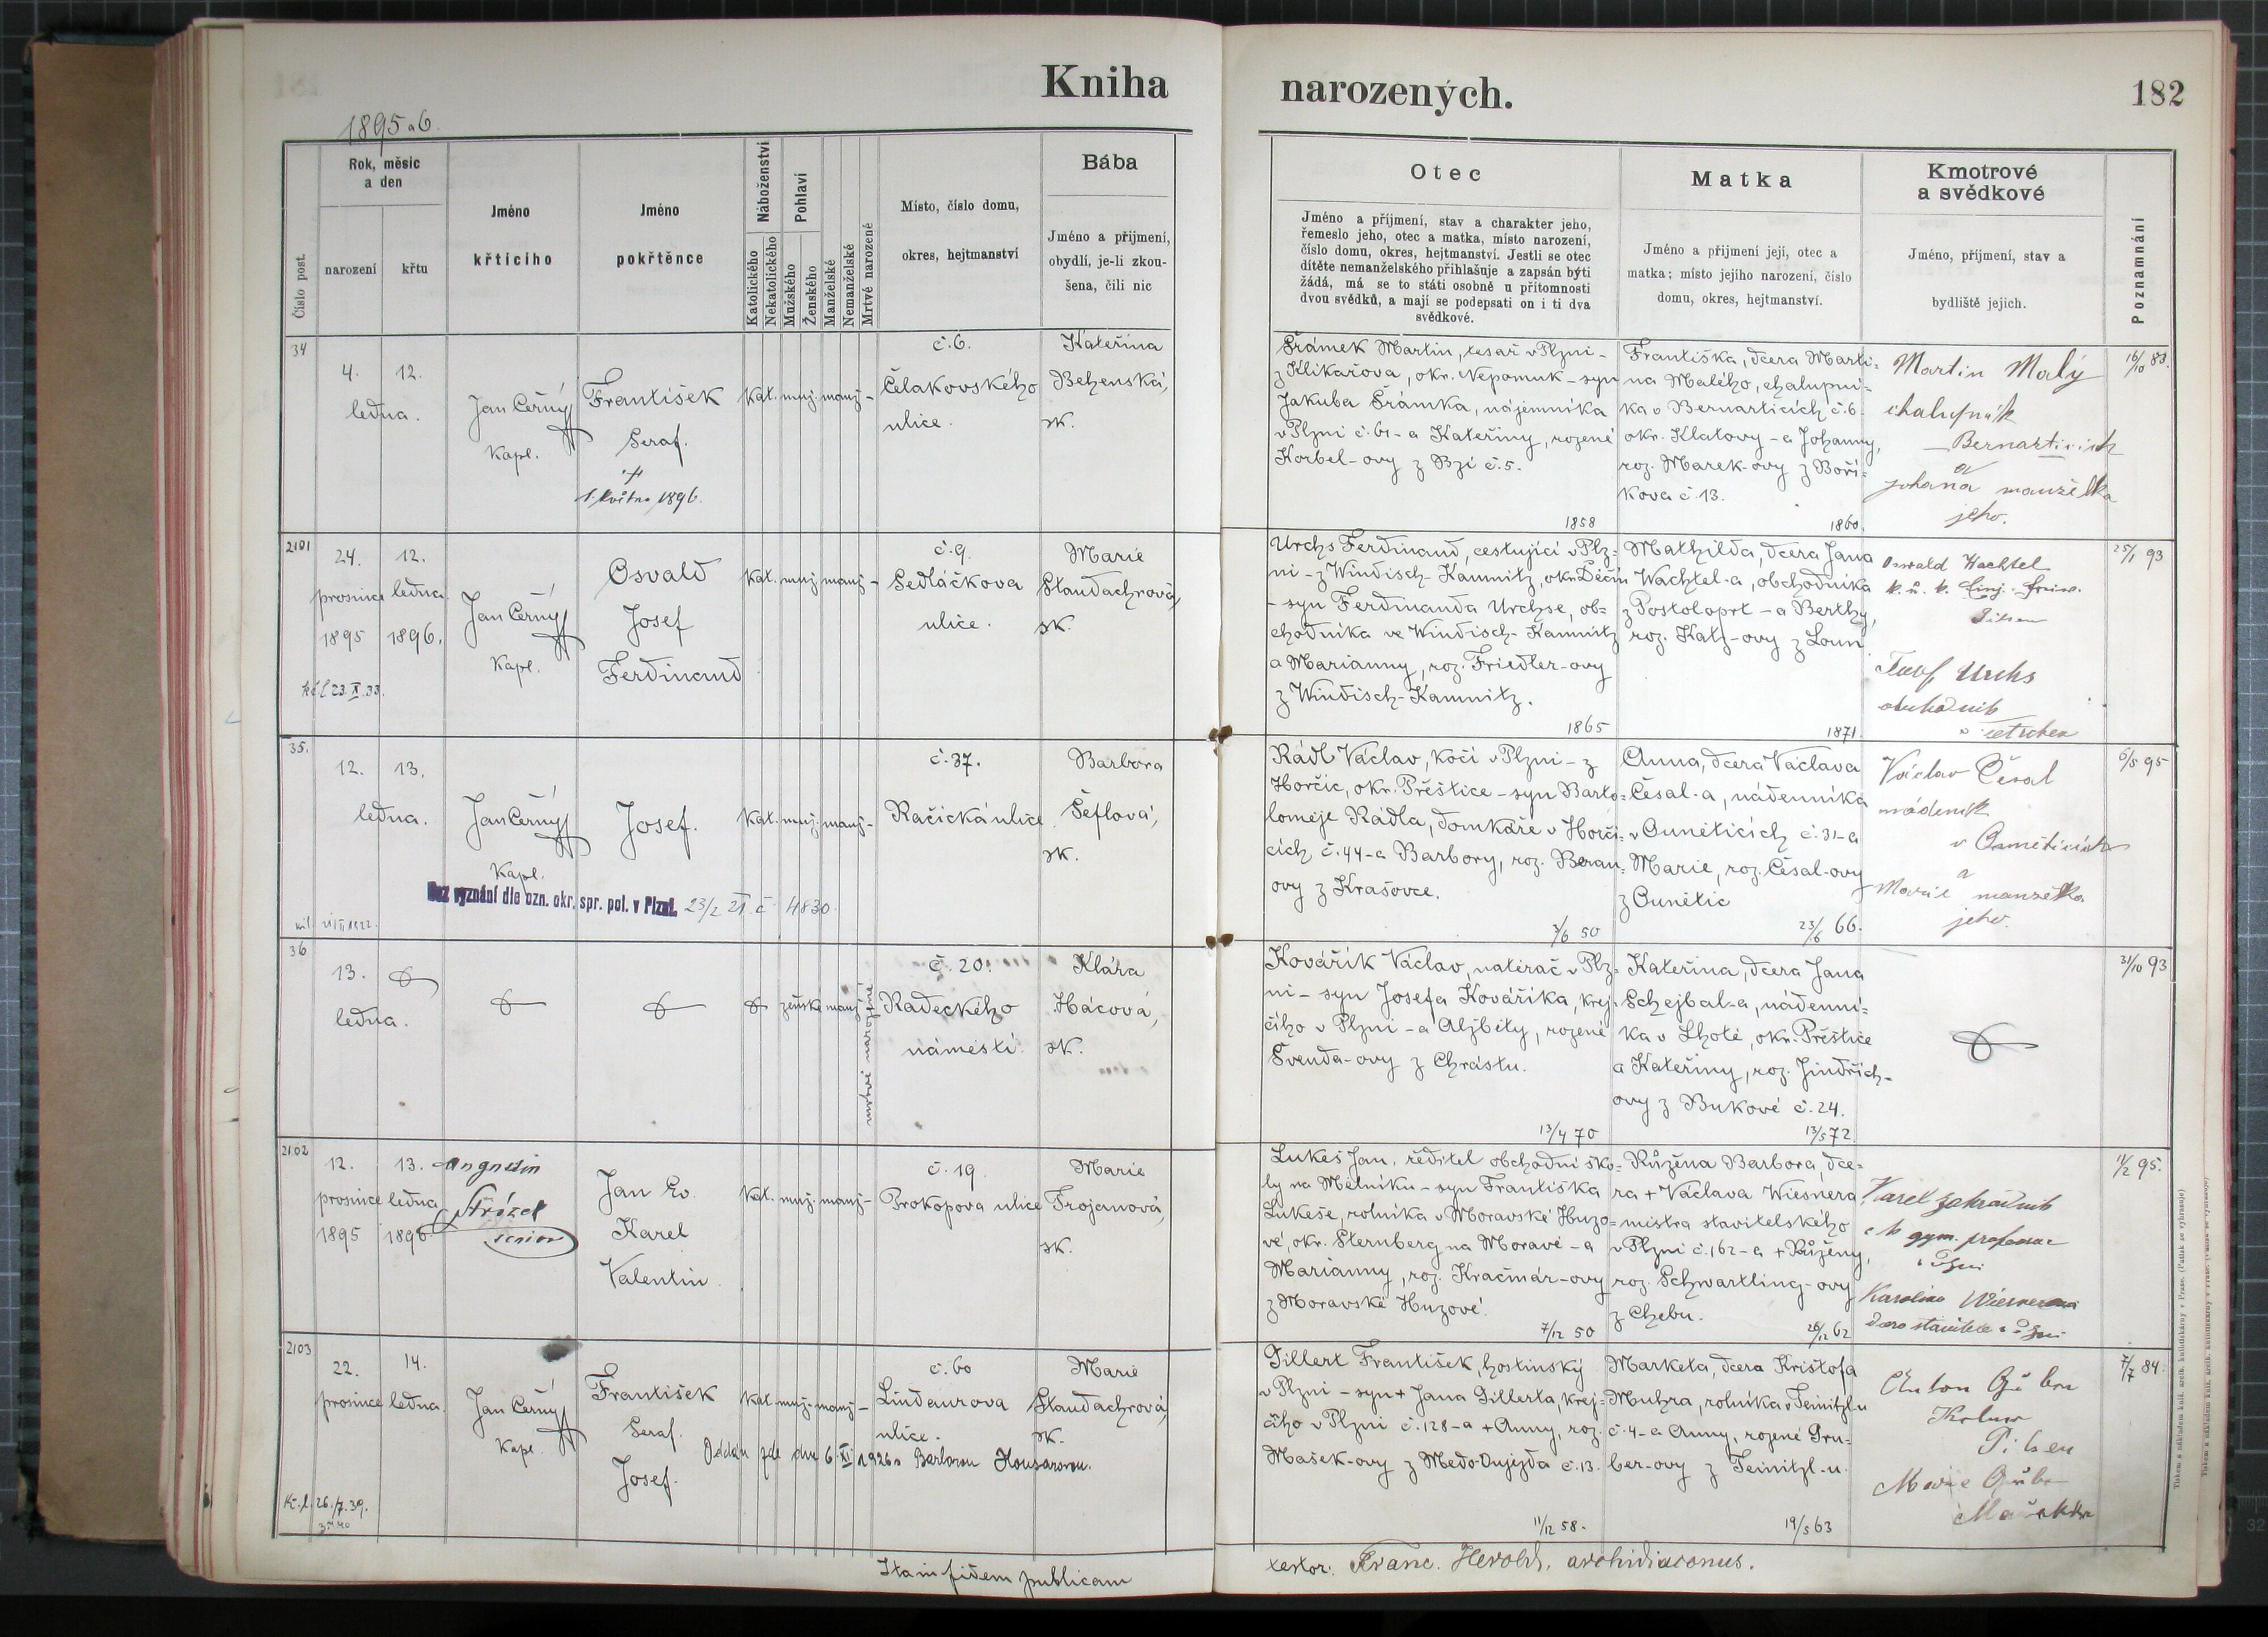 Kniha narozených.
182
1895 a 6.
Číslo post.
Rok, měsíc
a den
narození
křtu
Jméno
křtícího
Jméno
pokřtěnce
Náboženství
Katolického
Nekatolického
Pohlaví
Mužského
Ženského
Manželské
Nemanželské
Mrtvě narozené
Místo, číslo domu,
okres, hejtmanství
Bába
Jméno a přijmení,
obydlí, je-li zkou-
šena, čili nic
Otec
Jméno a příjmení, stav a charakter jeho,
řemeslo jeho, otec a matka, místo narození,
číslo domu, okres, hejtmanství. Jestli se otec
dítěte nemanželského přihlašuje a zapsán býti
žádá, má se to státi osobně u přítomnosti
dvou svědků, a mají se podepsati on i ti dva
svědkové.
Matka
Jméno a přijmení její, otec a
matka; místo jejího narození, číslo
domu, okres, hejtmanství.
Kmotrové
a svědkové
Jméno, příjmení, stav a
bydliště jejich.
Poznamnání
34
4. 12.
ledna.
Jan Černý
Kapl.
František
Seraf.
†
1. května 1896.
Kat. muž. manž-
č. 6.
Čelakovského
ulice.
Kateřina
Behenská,
zk.
Šrámek Martin, tesař v Plzni-
z Klikařova, okr. Nepomuk-syn
Jakuba Šrámka, nájemníka
v Plzni č. 61-a Kateřiny, rozené
Korbel-ovy z Bzí č. 5.
1858
Františka, dcera Marti-
na Malého, chalupní-
ka v Bernarticích č. 6.
okr. Klatovy-a Johanny,
roz. Marek-ovy z Boří-
kova č. 13.
1860.
Martin Malý
chalupník
Bernarticích
a
Johana manželka
jeho.
16/10 83.
2101
24. 12.
prosince ledna
1895 1896.
23.X.33.
Jan Černý
Kapl.
Osvald
Josef
Ferdinand
Kat. muž. manž-
č. 9.
Sedláčkova
ulice.
Marie
Staudachrová,
zk.
Urchs Ferdinand, cestující v Plz-
ni-z Windisch-Kamnitz, okr. Děčín
-syn Ferdinanda Urchse, ob-
chodníka ve Windisch-Kamnitz
a Marianny, roz. Friedler-ovy
z Windisch-Kamnitz.
1865
Mathilda, dcera Jana
Wachtel-a, obchodníka
z Postoloprt-a Berthy,
roz. Katz-ovy z Loun
1871.
Oswald Wachtel
k. u. k.
Pilsen
Josef Urchs
obchodník
25/1 93
35.
12. 13.
ledna.
Jan Černý
Kapl.
Josef.
Kat. muž. manž-
č. 37.
Račická ulice
Barbora
Šeflová,
zk.
Bez vyznání dle ozn. okr. spr. pol. v Plzni. 23/2 21. č. 4830.
Rádl Václav, kočí v Plzni-z
Horčic, okr. Přeštice-syn Barto-
loměje Rádla, domkáře v Horči-
cích č. 44-a Barbory, roz. Beran-
ovy z Krašovce.
7/6 50
Anna, dcera Václava
Česal-a, nádenníka
v Ouněticích č. 31-a
Marie, roz. Česal-ovy
z Ounětic
23/6 66.
Václav Česal
nádeník
v Ouněticích
a
Marie manželka
jeho.
6/5 95
36
13.
ledna.
ženské manž-
mrtvě narozené
č. 20.
Radeckého
náměstí.
Klára
Hácová,
zk.
Kovářík Václav, natěrač v Plz-
ni-syn Josefa Kováříka, krej-
čího v Plzni-a Alžběty, rozené
Švenda-ovy z Chrástu.
13/4 70
Kateřina, dcera Jana
Schejbal-a, nádenní-
ka v Lhotě, okr. Přeštice
a Kateřiny, roz. Jindřich-
ovy z Bukové č. 24.
13/5 72.
31/10 93
2102
12. 13.
prosince ledna
1895 1896
Augustin
Strózel
senior
Jan Ev.
Karel
Valentin
Kat. muž. manž-
č. 19.
Prokopova ulice
Marie
Trojanová,
zk.
Lukeš Jan, ředitel obchodní ško-
ly na Mělníku-syn Františka
Lukeše, rolníka v Moravské Huzo-
vé, okr. Sternberg na Moravě-a
Marianny, roz. Kračmár-ovy
z Moravské Huzové.
7/12 50
Růžena Barbora, dce-
ra + Václava Wiesnera,
mistra stavitelského
v Plzni č. 162-a + Růženy,
roz. Schwartling-ovy
z Chebu.
26/12 62
Karel Zahradník
c k gym. professor
v Plzni
Karolina Wiesnerová
dcera stavitele v Plzni
11/2 95.
2103
22. 14.
prosince ledna.
K. l. 26./7. 39.
Jan Černý
Kapl.
František
Seraf.
Josef.
Kat. muž. manž-
č. 60
Lindaurova
ulice.
Marie
Staudachrová,
zk.
Oddán zde dne 6. XI. 1926 s Barborou Housarovou.
Tillert František, hostinský
v Plzni-syn + Jana Tillerta, krej-
čího v Plzni č. 128-a + Anny, roz.
Mašek-ovy z Medo-Oujezda č. 13.
11/12 58.
Marketa, dcera Krištofa
Muhra, rolníka v Teinitzl-u
č. 4-a Anny, rozené Gru-
ber-ovy z Teinitzl-u.
19/5 63
Anton
Pilsen
Marie
7/7 84.
Ita in fidem publicam
testor: Franc. Herold, archidiaconus.